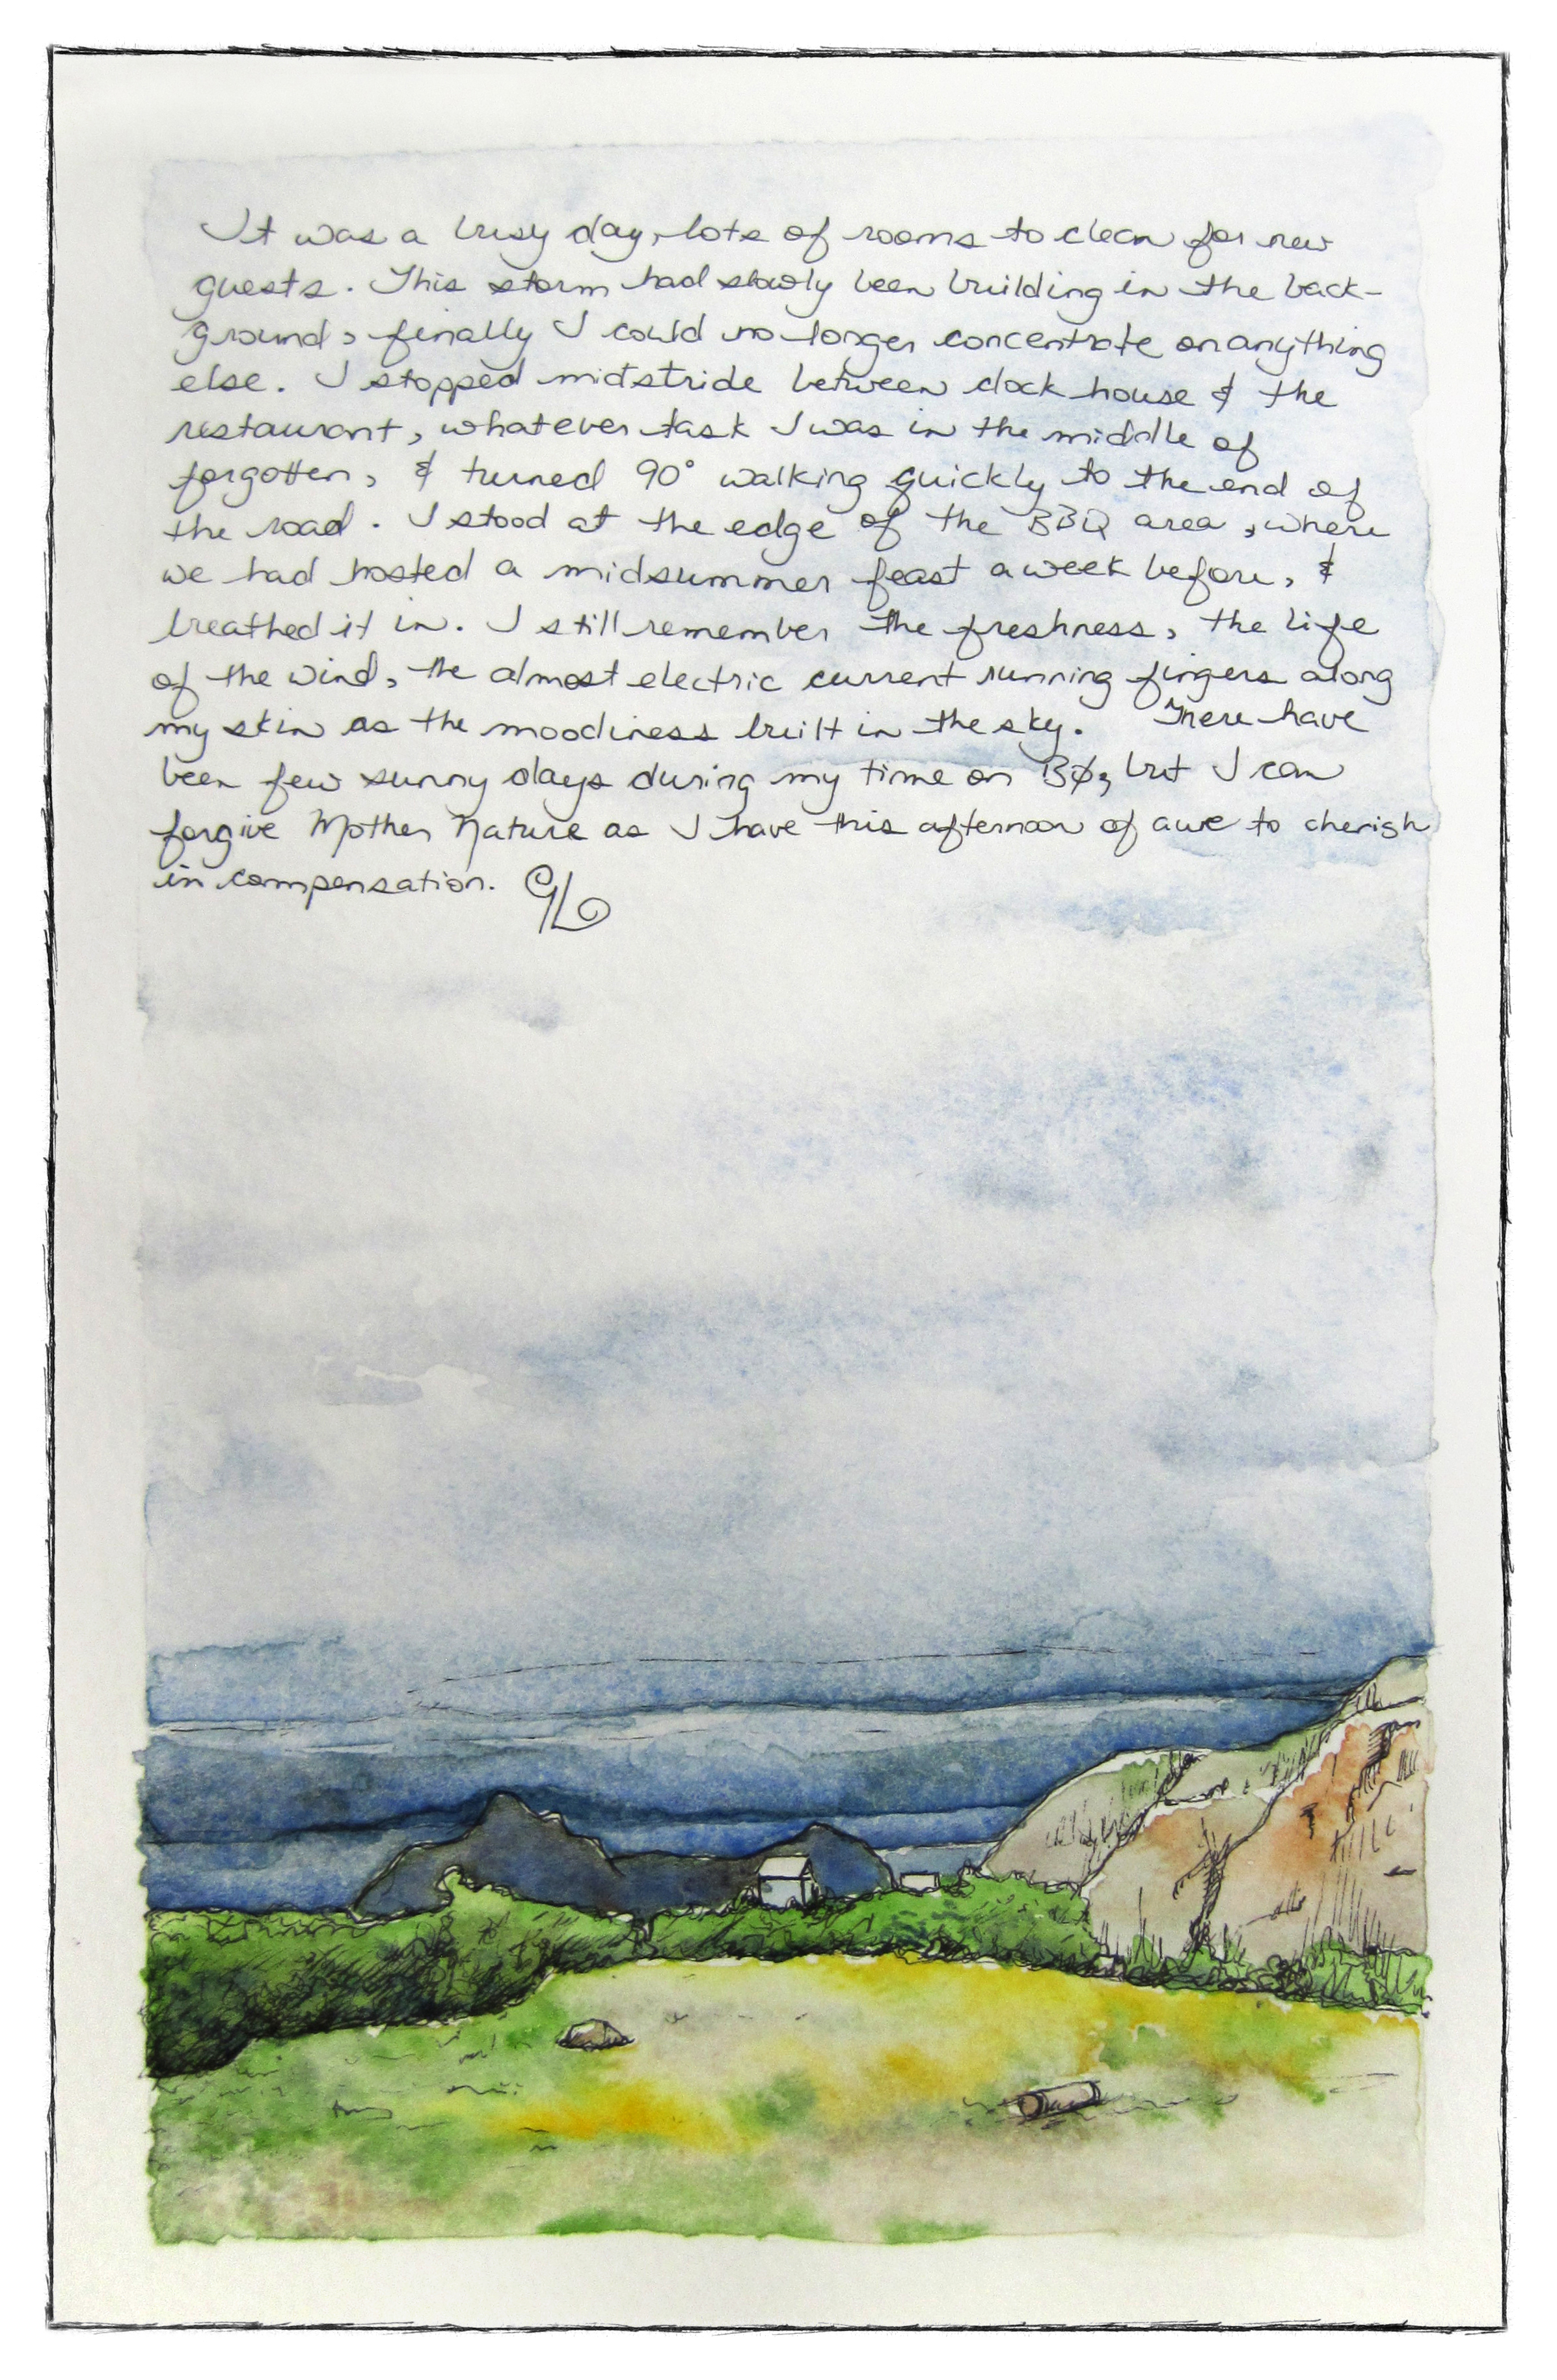 It was a busy day, lots of rooms to clean for new
guests. This storm had slowly been building in the back-
ground, finally I could no longer concentrate on anything
else. I stopped midstride between dock house & the
restaurant, whatever task I was in the middle of
forgotten, & turned 90° walking quickly to the end of
the road. I stood at the edge of the BBQ area, where
we had hosted a midsummer feast a week before, &
breathed it in. I still remember the freshness, the life
of the wind, the almost electric current running fingers along
my skin as the moodiness built in the sky. There have
been few sunny days during my time on Bø, but I can
forgive Mother Nature as I have this afternoon of awe to cherish
in compensation. GL